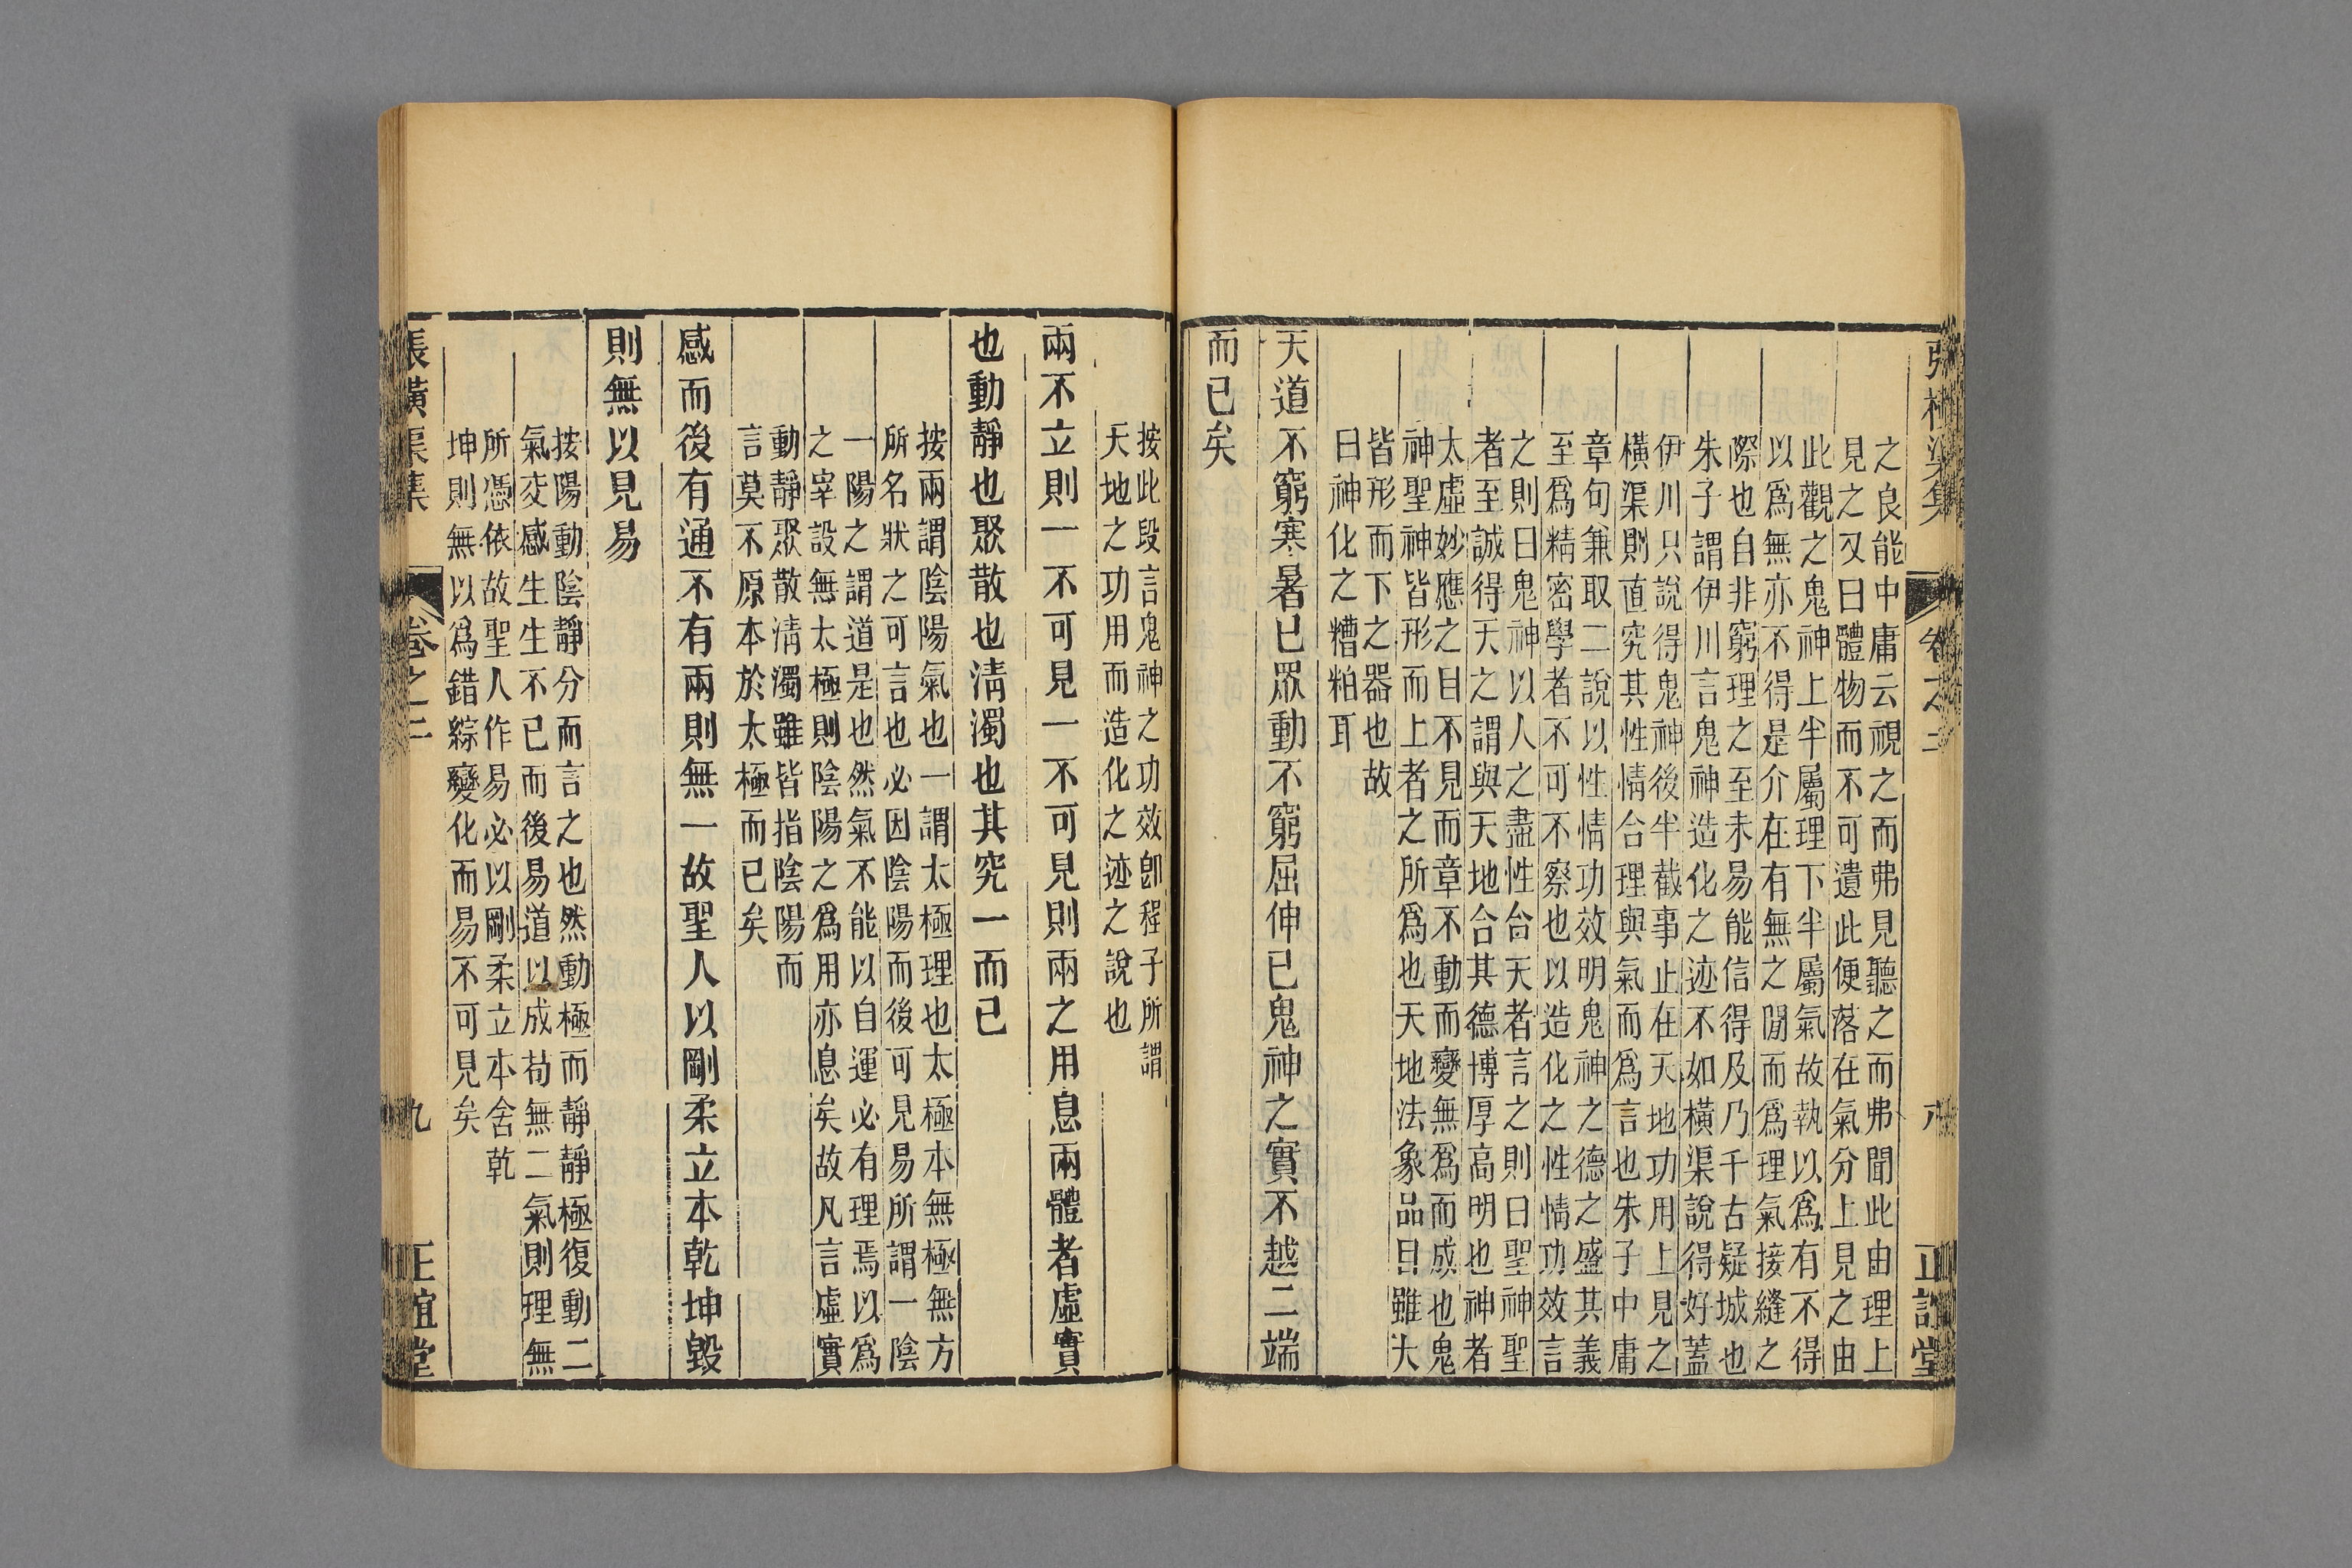 張橫渠集 卷之二 八 正誼堂
之良能中庸云視之而弗見聽之而弗聞此由理上
見之又曰體物而不可遺此便落在氣分上見之由
此觀之鬼神上半屬理下半屬氣故執以爲有不得
以爲無亦不得是介在有無之閒而爲理氣接縫之
際也自非窮理之至未易能信得及乃千古疑城也
朱子謂伊川言鬼神造化之迹不如橫渠說得好蓋
伊川只說得鬼神後半截事止在天地功用上見之
橫渠則直究其性情合理與氣而爲言也朱子中庸
章句兼取二說以性情功效明鬼神之德之盛其義
至爲精密學者不可不察也以造化之性情功效言
之則曰鬼神以人之盡性合天者言之則曰聖神聖
者至誠得天之謂與天地合其德博厚高明也神者
太虛妙應之目不見而章不動而變無爲而成也鬼
神聖神皆形而上者之所爲也天地法象品目雖大
皆形而下之器也故
曰神化之糟粕耳
天道不窮寒暑已眾動不窮屈伸已鬼神之實不越二端
而已矣
按此段言鬼神之功效卽程子所謂
天地之功用而造化之迹之說也
兩不立則一不可見一不可見則兩之用息兩體者虛實
也動靜也聚散也淸濁也其究一而已
按兩謂陰陽氣也一謂太極理也太極本無極無方
所名狀之可言也必因陰陽而後可見易所謂一陰
一陽之謂道是也然氣不能以自運必有理焉以爲
之宰設無太極則陰陽之爲用亦息矣故凡言虛實
動靜聚散淸濁雖皆指陰陽而
言莫不原本於太極而已矣
感而後有通不有兩則無一故聖人以剛柔立本乾坤毀
則無以見易
按陽動陰靜分而言之也然動極而靜靜極復動二
氣交感生生不已而後易道以成苟無二氣則理無
所憑依故聖人作易必以剛柔立本舍乾
坤則無以爲錯綜變化而易不可見矣
張橫渠集 卷之二 九 正誼堂